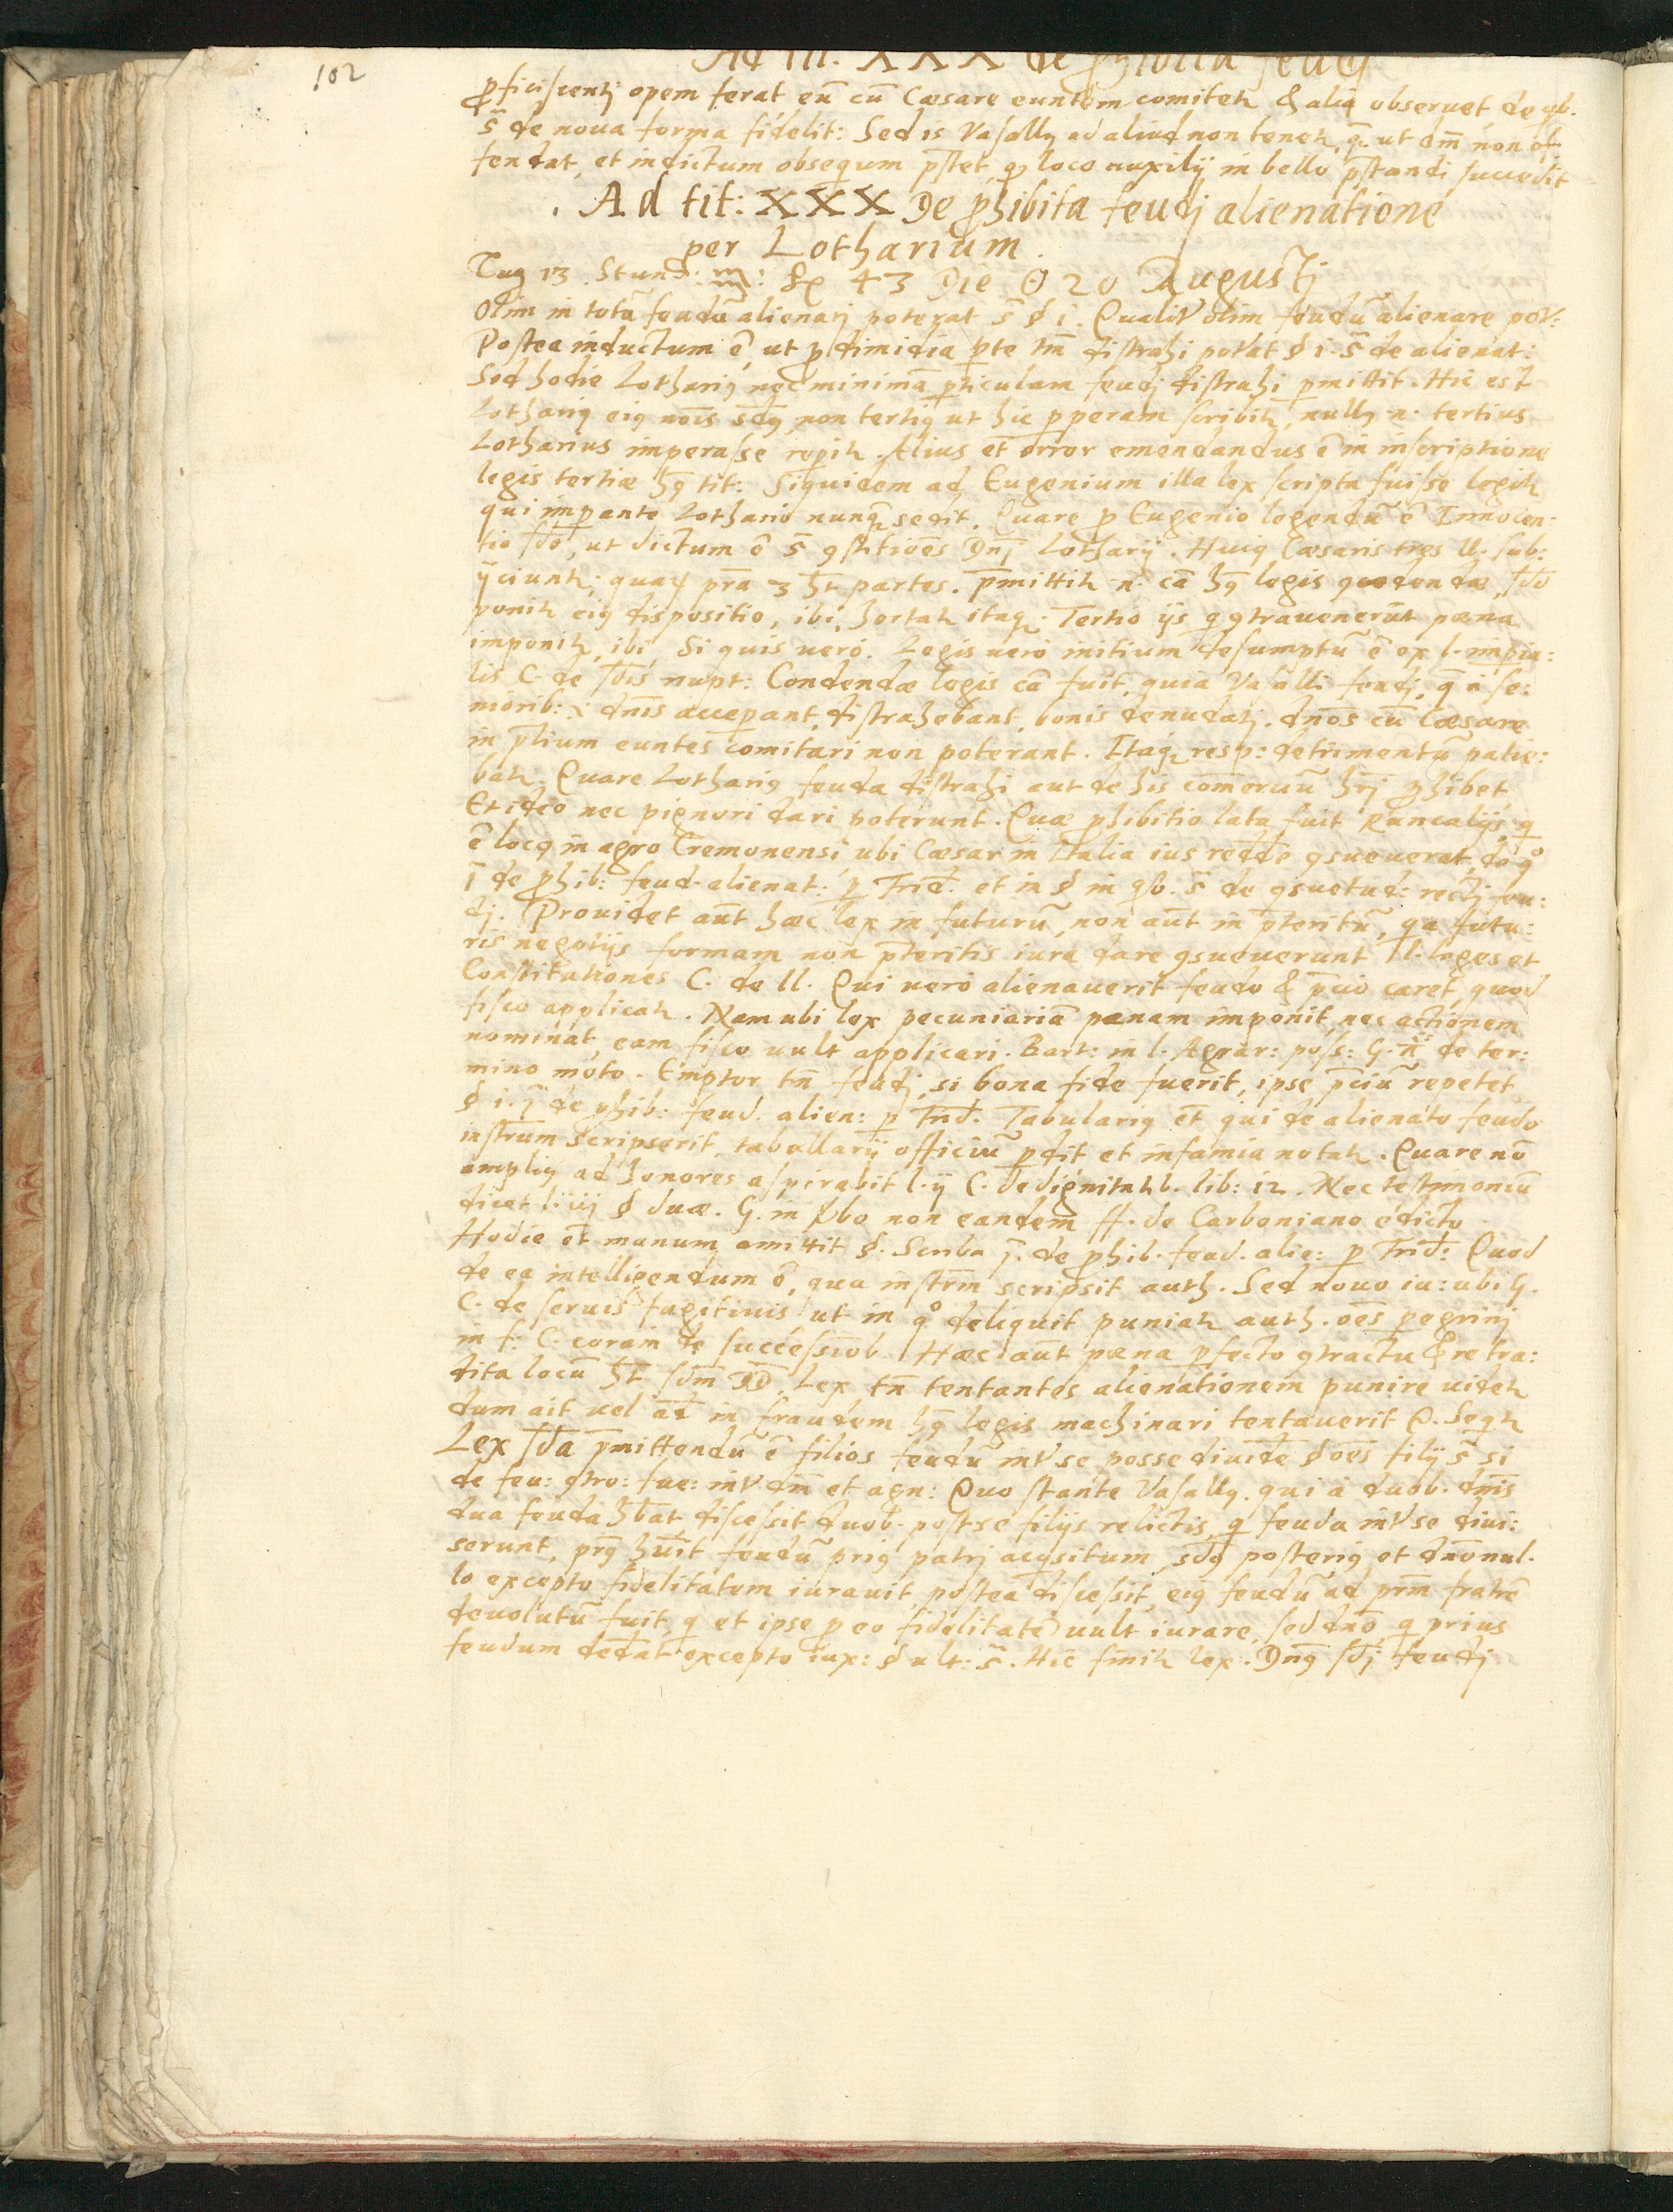 102
Ad tit. XXX de ꝓhibita feudj
ꝓficiscentj opem ferat eū cū Cæsare euntem comitetr & alia obseruet, de qb.
s̄ de noua forma fidelit: Sed is Vasallꝰ ad aliud non tenetr, q̄ ut dm̄ non of-
fendat, et indictum obsequm p̄stet, q loco auxilij in bello p̄standi succedit
. Ad tit: XXX De ꝓhibita feudj alienatione
per Lotharium.
Tag 13. Stund: 43 Die 20 Augustj
Olim in totū feudū alienarj poterat s̄ § i. Qualitr olim feudū alienare pot:
Postea inductum ē, ut ꝑ dimidia ꝑte tm̄ distrahi potat § i. s̄ de alienat:
Sed hodie Lothariꝰ nec minimā ꝑticulam feudj distrahi ꝑmittit. Hic est
Lothariꝰ eiꝰ nōis sdꝰ, non tertiꝰ ut hic ꝑperam scribitr, nullꝰ n. tertius
Lotharius imperasse reꝑitr. Alius et error emendandus ē in inscriptione
legis tertiæ hꝰ tit: Siquidem ad Eugenium illa lex scripta fuisse legitr
qui imꝑante Lothario nunq̄ sedit. Quare ꝓ Eugenio legendū ē Innocen-
tio sdo, ut dictum ē s̄ ꝯstitiōes Dnj Lotharij. Huiꝰ Cæsaris tres ll. sub:
ijciuntr. quarum pra 3 ht partes. p̄mittitr n. cā hꝰ legis ꝯdendæ, sdo
ponitr eiꝰ dispositio, ibi, hortatr itaq. Tertio ijs q ꝯtrauenerūt pæna
imponitr, ibi, Si quis uero. Legis uero initium desumptū ē ex l. imꝑia:
lis C. de sdis nupt: Condendæ legis cā fuit, quia Vasalli feudj, q̄ a se:
niorib: i dnis acceꝑant, distrahebant, bonis denudatj. dnos cū Cæsare
in p̄lium euntes comitari non poterant. Itaq resp: detrimentū patie:
batr. Quare Lothariꝰ feuda distrahi aut de his comerciū hrj ꝓhibet
Et ideo nec pignori dari poterunt. Quæ ꝓhibitio lata fuit Runcalijs, q
ē locꝰ in agro Cremonensi ubi Cæsar in Italia ius reddē ꝯsueuerat, de qo
j̄ de ꝓhib: feud. alienat: ꝑ Frid. et in § in qb. s̄ de ꝯsuetud: rectj feu:
dj. Prouidet aūt hæc lex in futurū, non aūt in p̄teritū, qa futu:
ris negotijs formam non p̄teritis iura dare ꝯsueuerunt ll. leges et
Constitutiones C. de ll. Qui uero alienauerit feudo & p̄cio caret, quod
fisco applicatr. Nam ubi lex pecuniariā pænam imponit, nec actionem
nominat, eam fisco uult applicari. Bart: in l. Agrar: poss: G. ff de ter:
mino moto. Emptor tn̄ feudj, si bona fide fuerit, ipse p̄ciū repetet
§ i. j̄ de ꝓhib: feud. alien: ꝑ Frid. Tabulariꝰ et qui de alienato feudo
instrum scripserit, tabullarij officiū ꝑdit et infamia notatr. Quare nō
ampliꝰ ad honores aspirabit l. ij C. de dignitatib. lib: 12. Nec testimoniū
dicat l. iij § duæ. G. in ūbo non eandem ff. de Carboniano edicto.
Hodie et manum amittit §. Scriba j̄. de ꝓhib. feud. alie: ꝑ Frid: Quod
de ea intelligendum ē, qua instrm̄ scripsit auth. Sed nouo iu: ubi G.
C. de seruis fugitiuis ut in qo deliquit puniatr auth. oēs ꝑegrinj
in f. C. coram de successiob. Hæc aūt pæna ꝑfecto ꝯtractu & re tra:
dita locū ht sdm DD. Lex tn̄ tentantes alienationem punire uidetr
dum ait uel ad in fraudem hꝰ legis machinari tentauerit Q. Seqtr
Lex sda p̄mittendū ē filios feudū intr se posse diuidē § oēs filij s̄ si
de feu: ꝯtro: fue: intr dm̄ et agn: Quo stante Vasallꝰ. qui a duob. dnis
dua feuda hēbat discessit duob. post se filijs relictis, q feuda intr se diui:
serunt, prꝰ huit feudū priꝰ patrj acqsitum, sdꝰ posteriꝰ et dno nul-
lo excepto fidelitatem iurauit, postea discessit, eiꝰ feudū ad prm̄ fratrē
deuolutū fuit, q et ipse ꝑ eo fidelitatē uult iurare, sed dno, q prius
feudum dedat excepto iux: § ult: s̄. Hic finitr lex. Dnꝰ sdj feudj